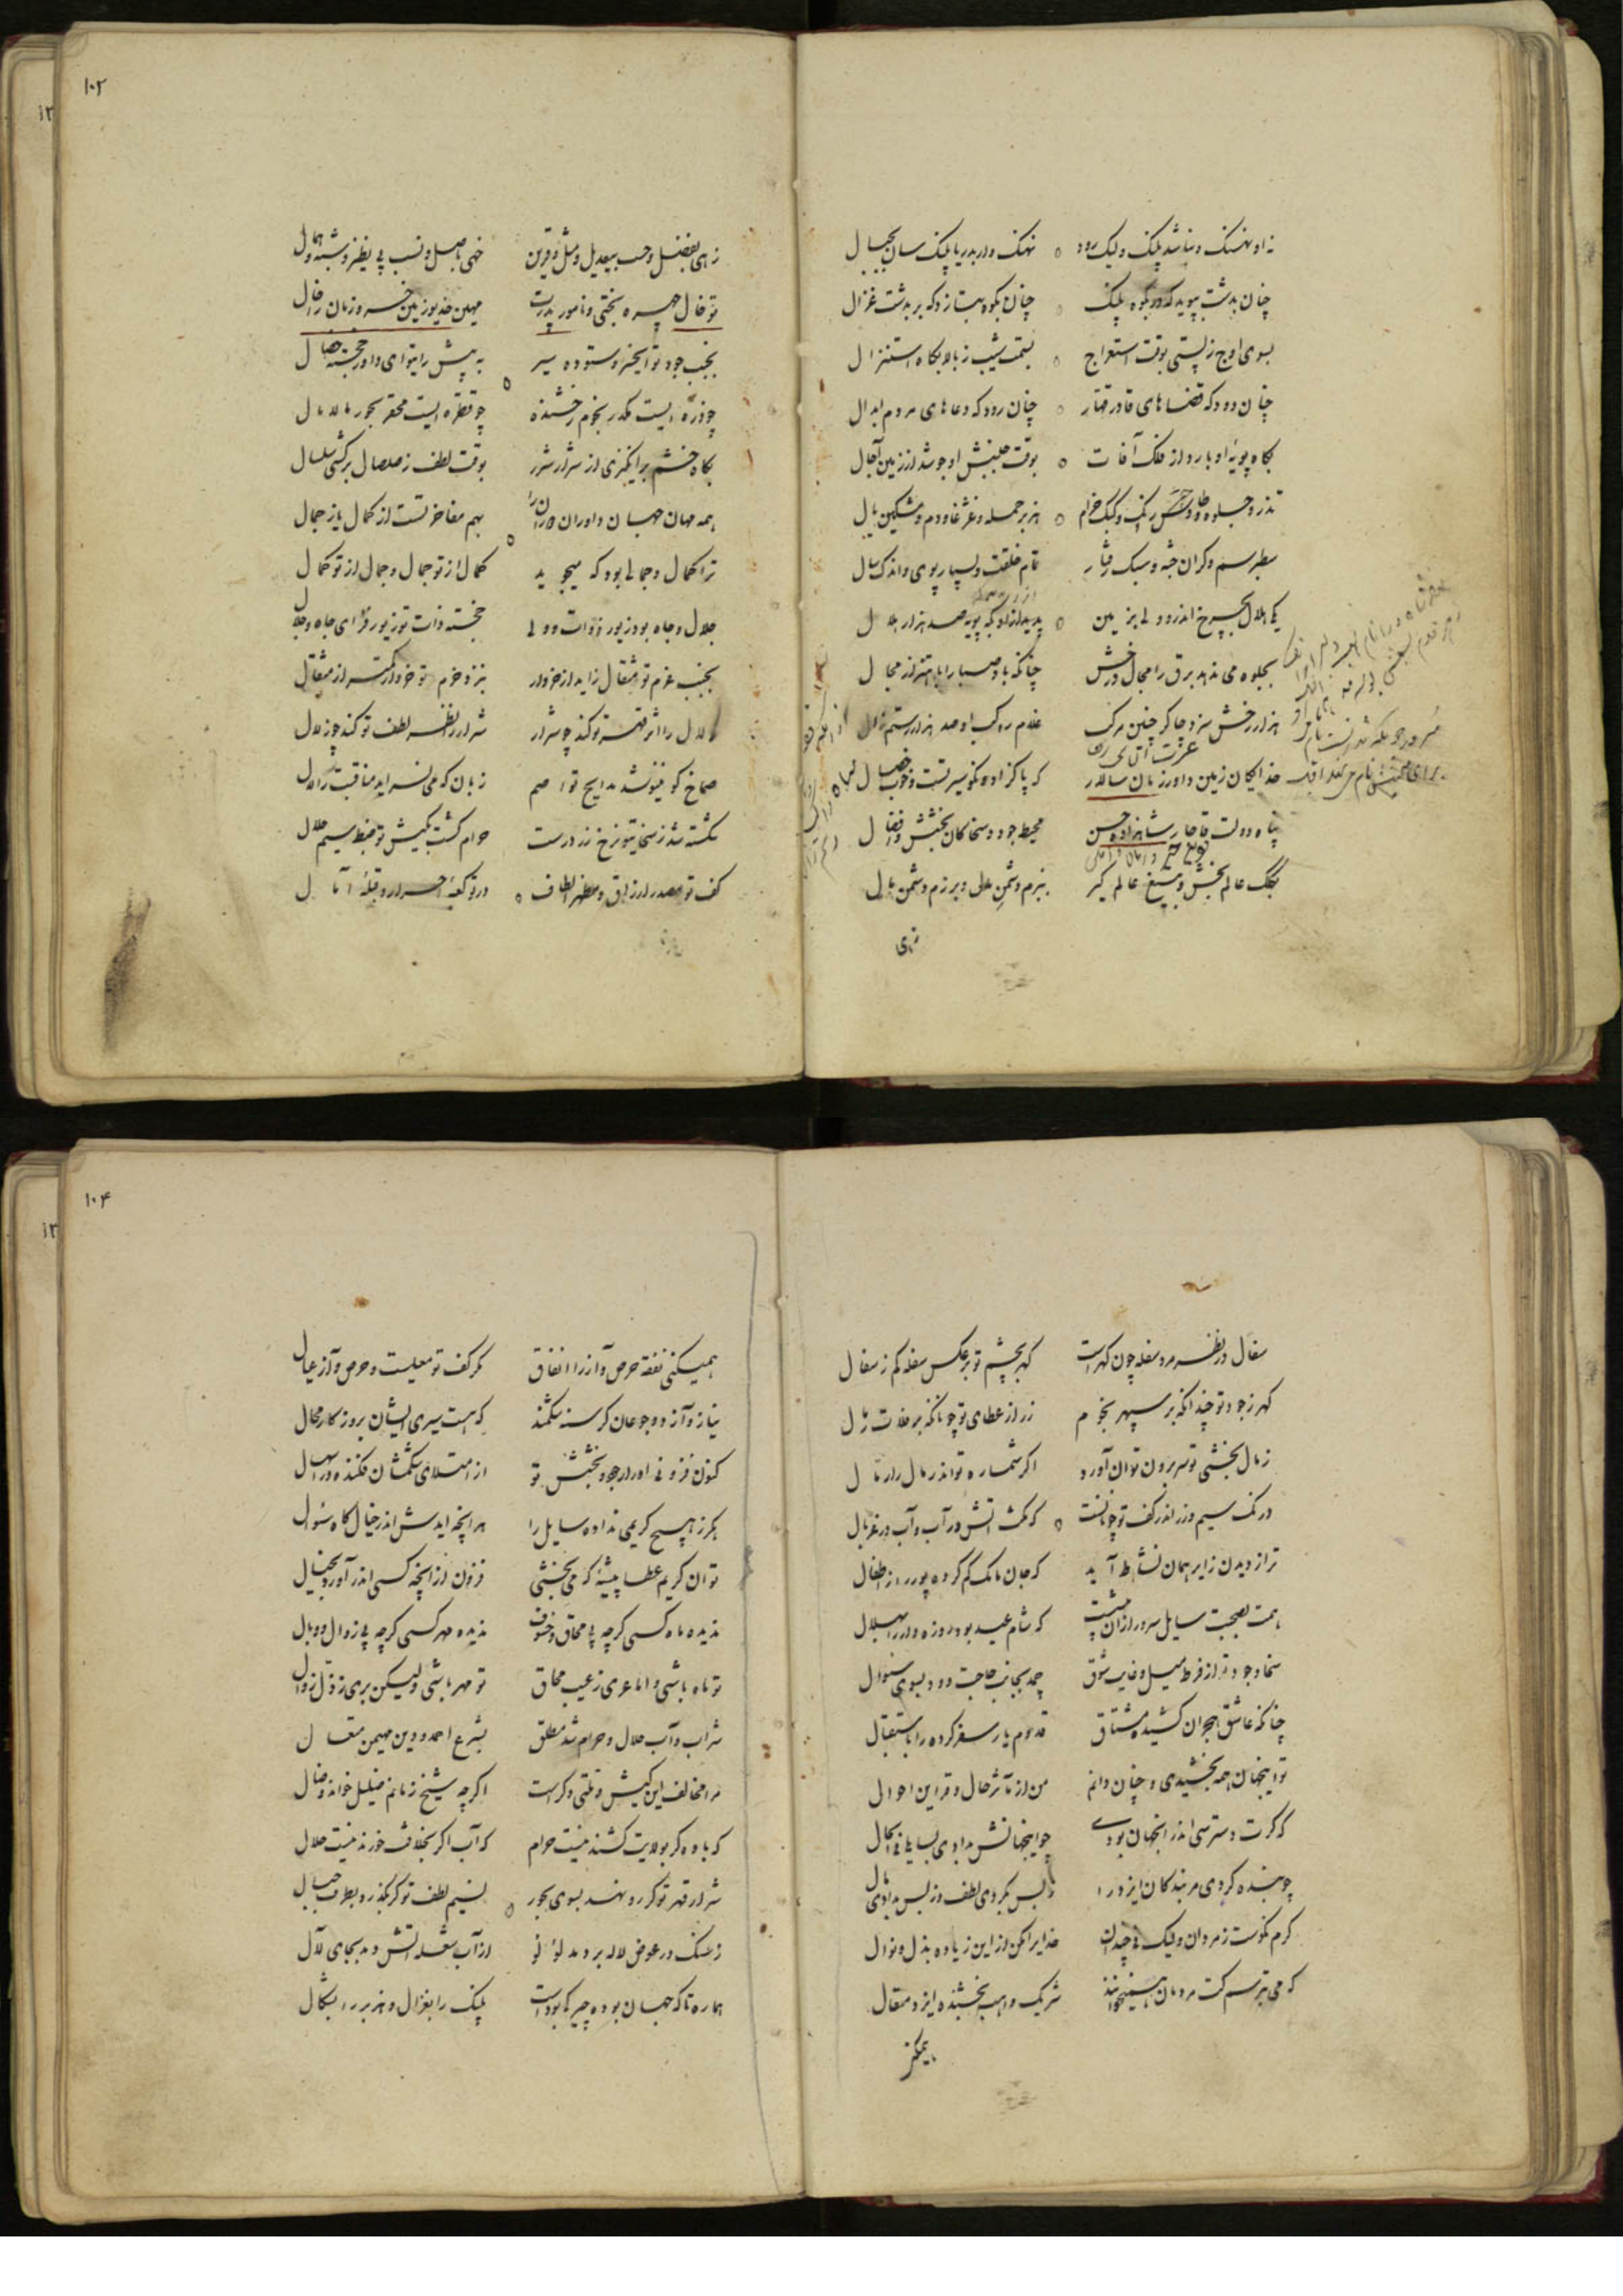 ۱۰۲
نه او نهنگ و نباشد پلنگ و لیک رود نهنگ وار بدریا پلنگ سان بجبال
چنان بدشت بپوید که در بکوه پلنگ چنان بکوه بتازد که بر بدشت غزال
بسوی اوج ز پستی بوقت استعراج بسمت شیب ز بالا بگاه استنزال
چنان دود که قضاهای قادر قهار چنان رود که دعاهای مردم ابدال
بگاه پویه او بارد از فلک آفات بوقت جنبش او جوشد از زمین آجال
تذرو جلوه و طاوس رنگ و کبک خرام هزبر حمله و غژغاو دم و مشکین یال
سطبر سم و گران جثه و سبک رفتار تمام خلقت و بسیار پوی و اندک سال
یکی هلال بچرخ اندر و ولی بزمین پدید ازو گه پویه صد هزار هلال
بجلوه می ندهد برق را مجال درخش چنانکه باد صبا را باهتزاز مجال
هزار رخش سزد چاکر چنین مرکب غلام راکب او صد هزار رستم زال
خدایگان زمین داور زمان سالار که پاکزاده نکو سیرتست و خوب خصال
پناه دولت قاجار شاهزاده حسن محیط جود و سخا کان بخشش و افضال
بکلک عالم بخش و بتیغ عالم گیر ببزم دشمن مال و برزم دشمن مال
زهی
زهی بفضل و حسب بیعدیل و مثل و قرین خهی باصل و نسب بی نظیر و شبه و همال
تو خال چهره بختی و نامور پدرت مهین خدیو زمین خسرو زمان
بجنب جود تو ایخسرو ستوده سیر به پیش رای تو ای داور خجسته خصال
چو ذره ایست مکدر نجوم رخشنده چو قطره ایست محقر بحور مالامال
بگاه خشم برانگیزی از شرار شرر بوقت لطف ز صلصال برکشی سلسال
همه مهان جهان و داوران بهم مفاخرتست از کمال یا ز جمال
ترا کمال و جمالی بود که میجوید کمال از تو جمال و جمال از تو کمال
جلال و جاه بود زیور ذوات ولی خجسته ذات تو زیور فزای جاه و جلال
بجنب عزم تو مثقال زاید از خروار بنزد حزم تو خروار کمتر از مثقال
زلال را اثر قهر تو کند چو شرار شرار را نظر لطف تو کند چو زلال
صماخ کو نینوشد مدایح تو اصم زبان که می نسراید مناقبت را لال
شکسته شد ز سخای تو نرخ زر درست حرام گشت بکیش تو ضبط سیم حلال
کف تو مصدر ارزاق و مظهر الطاف در تو کعبه احرار و قبله آمال
۱۰۴
سفال در نظر مرد سفله چون گهر است گهر بچشم تو بر عکس سفله کم ز سفال
گهر ز جود تو چندانکه بر سپهر نجوم زر از عطای تو چونانکه بر فلات رمال
ز مال بخشی تو سر برون توان آورد اگر شماره تواند رمال را رمال
درنگ سیم و زر اندر کف تو چونانست که مکث آتش در آب و آب در غربال
ترا ز دیدن زایر همان نشاط آید که جان مامک گم کرده پور از اطفال
همت بصحبت سایل سرور از آن بیشست که شام عید بود روزه دار را بهلال
سخا و جود تو از فرط میل و غایت شوق جهد بجانب حاجت دود بسوی سئوال
چنانکه عاشق هجران کشیده مشتاق قدوم یار سفر کرده را باستقبال
تو اینجهان همه بخشیدی و چنان دانم من از مآثر حال و قراین احوال
که گرت دسترسی اندر آنجهان بودی چو اینجهانش بدادی بسایل فی الحال
چو بنده کردی مر بندگان ایزد را ز بس بکردی لطف و ز بس بدادی مال
کرم نکوست ز مردان و لیک نی چندان خدایرا مکن از این زیاده بذل و نوال
که می بترسم کت مردمان همیخوانند شریک واهب بخشنده ایزد متعال
همیکنی
همیکنی نفقه حرص و آز را انفاق مگر کف تو معیلست و حرص و آز عیال
نیاز و آز دو جوعان گرسنه شکمند که هست سیری ایشان بروزگار محال
کنون فزونی ادرار جود و بخشش تو از امتلای شکمشان فکنده در اسهال
مگر ز هیچ کریمی نداده سایل را هر آنچه آیدش اندر خیال گاه سئوال
تو آن کریم عطا پیشه که می بخشی فزون از آنچه کسی اندر آورد بخیال
ندیده ماه کسی گرچه بی محاق و خسوف ندیده مهر کسی گرچه بی زوال و وبال
تو ماه باشی و اما عری ز عیب محاق تو مهر باشی و لیکن بری ز ذل زوال
شراب و آب حلال و حرام شد مطلق بشرع احمد و دین مهیمن متعال
مرا مخالف این کیش و ملتی دگر است اگر چه شیخ زمانم ضلیل خواند و ضال
که باده گر بولایت کشند نیست حرام که آب اگر بخلافت خورند نیست حلال
شرار قهر تو گر رو نهد بسوی بحور نسیم لطف تو گر بگذرد بطرف جبال
ز سنگ در عوض لاله بردمد لؤلؤ از آب شعله آتش دمد بجای لآل
هماره تا که جهان بوده چیره بوده است پلنگ را بغزال و هزبر را بشگال